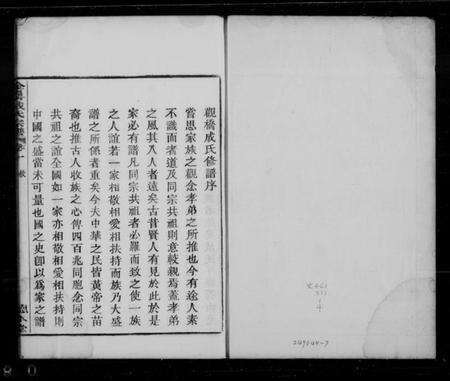 觀橋戚氏修譜序
嘗思家族之觀念孝弟之所推也今有途人素
不識面者道及同宗共祖則意較親焉蓋孝弟
之風其入人者遠矣古昔賢人有見於此於是
家必有譜凡同宗共祖者必羅而致之使一族
之人誼若一家相敬相愛相扶持而族乃大盛
譜之所係者重矣今夫中華之民皆黃帝之苗
裔也推古人收族之心俾四百兆同胞念同宗
共祖之誼全國如一家亦相敬相愛相扶持則
中國之盛當未可量也國之史卽以爲家之譜
4
249044-7